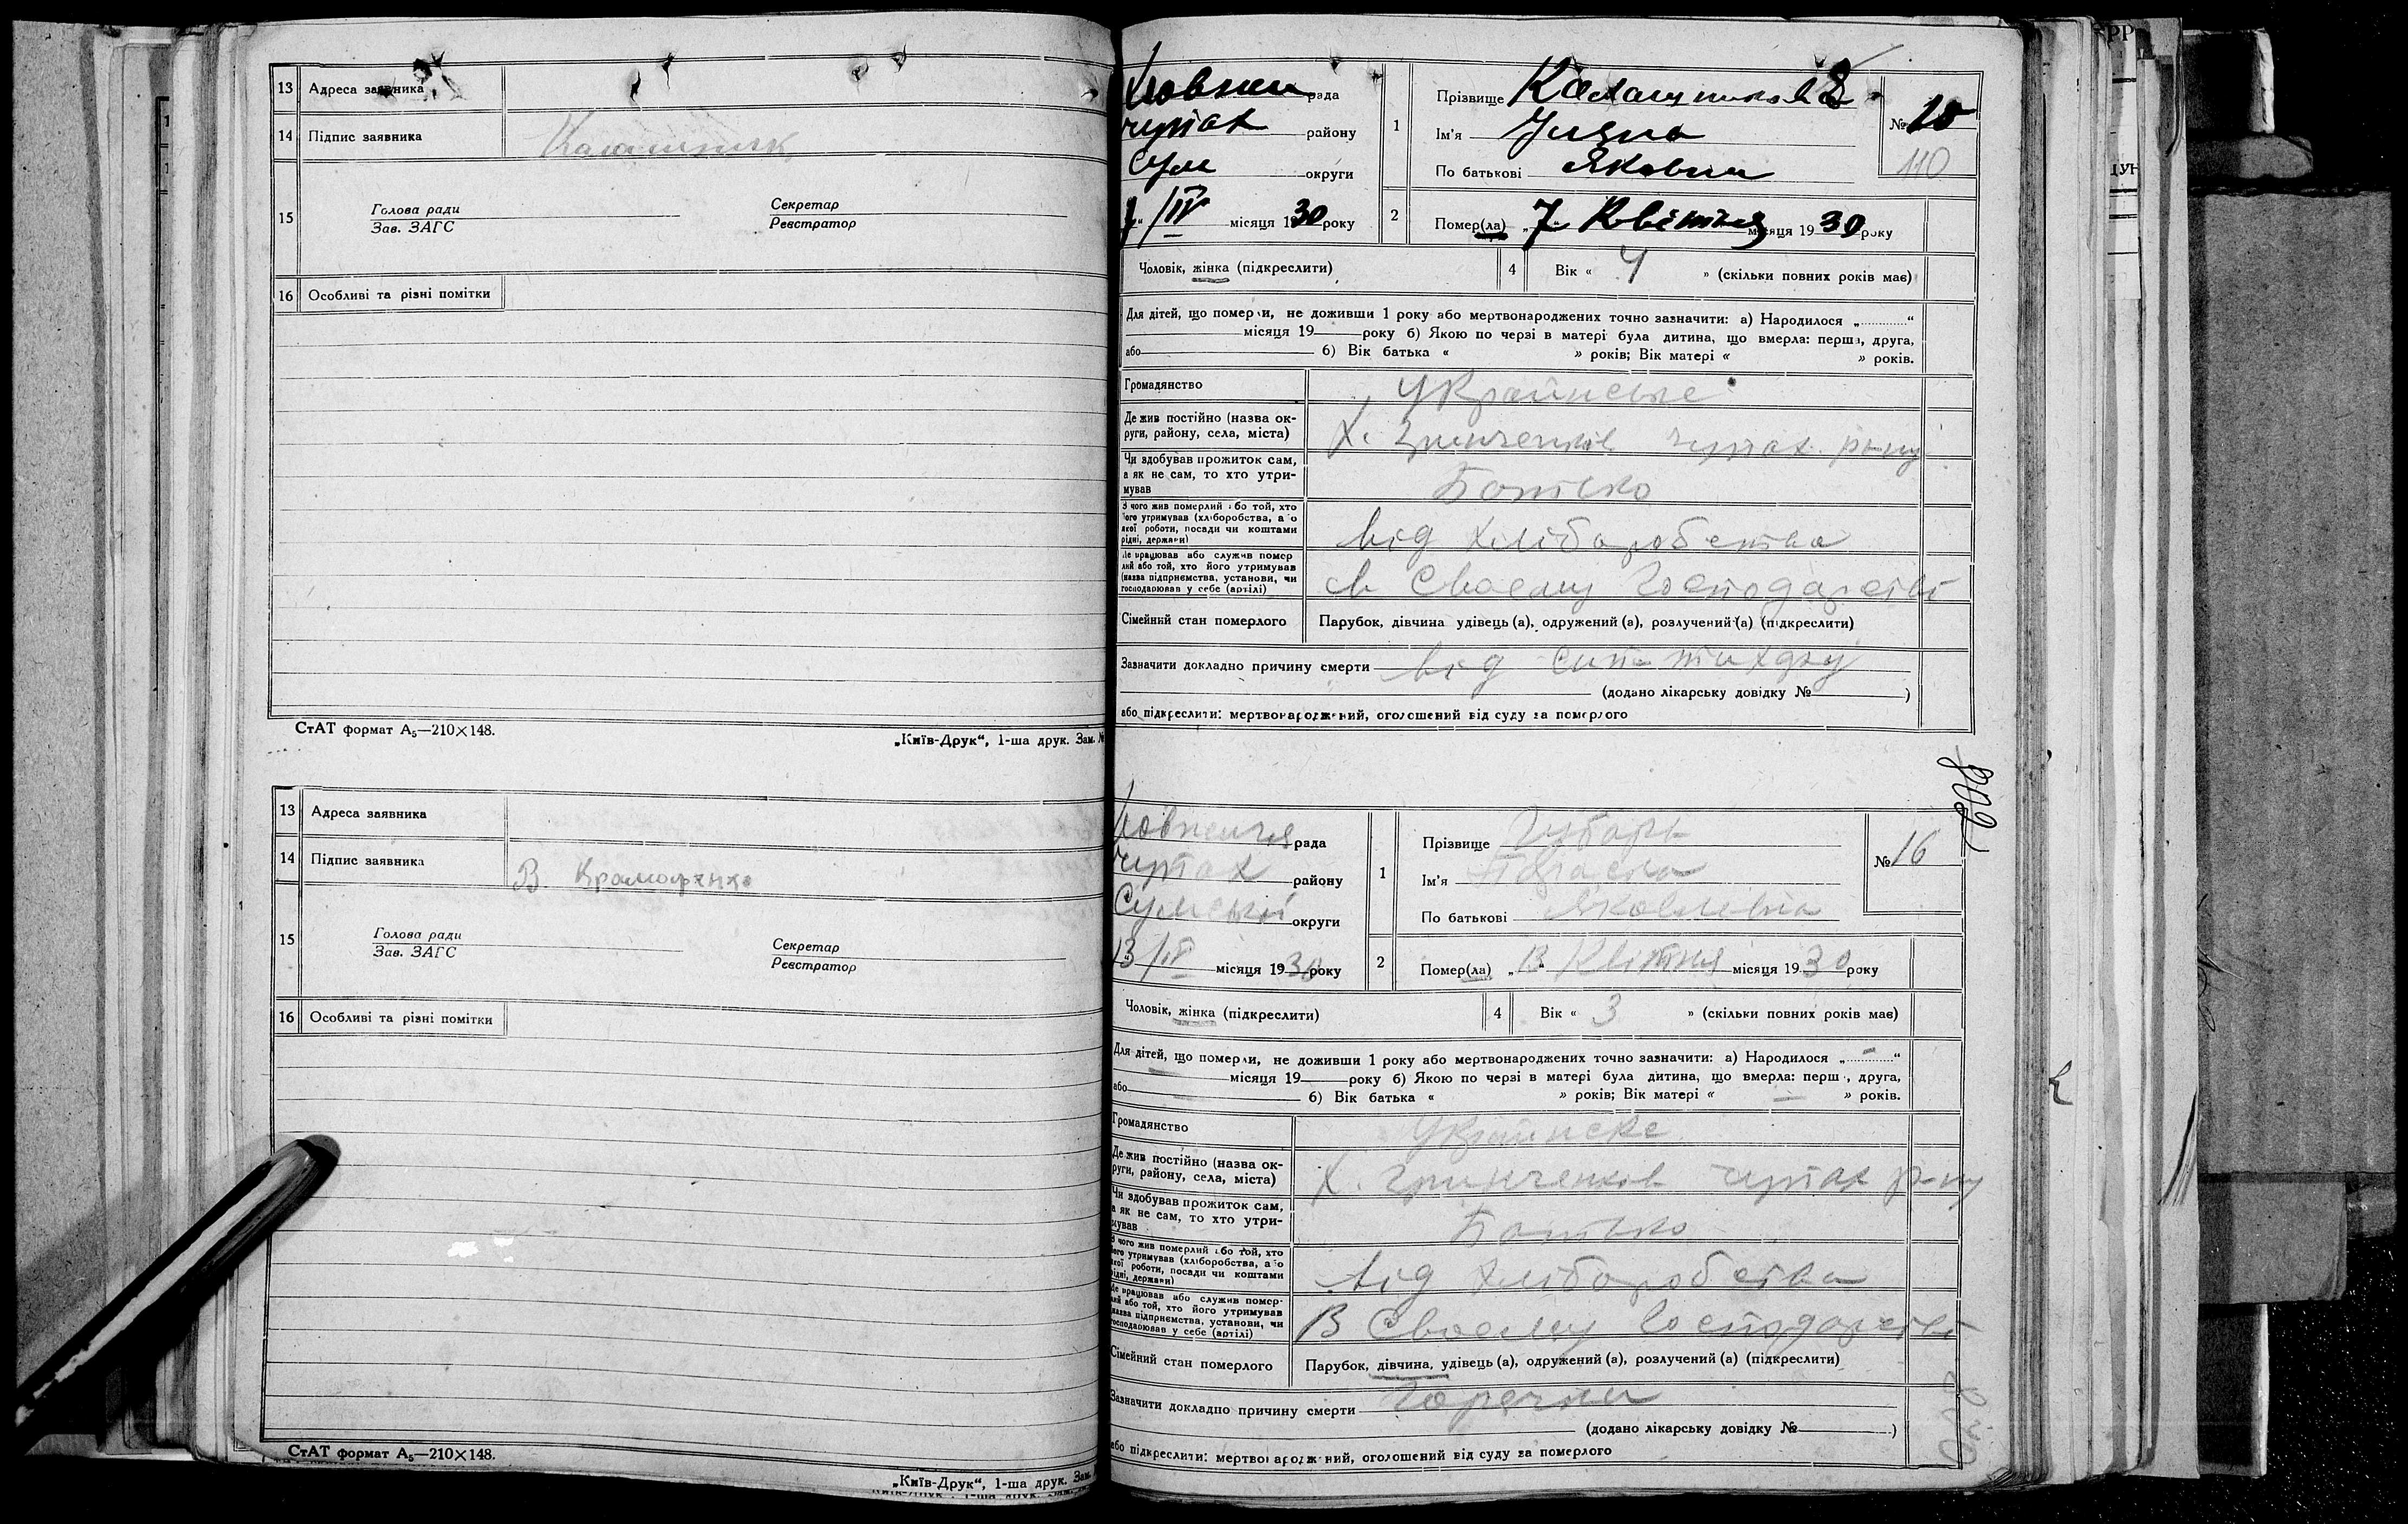 13 Адреса заявника
14 Підпис заявника Калашник
15 Голова ради Секретар
Зав. ЗАГС Реєстратор
16 Особливі та різні помітки
СтАТ формат А₅—210×148.
„Київ-Друк“, 1-ша друк. Зам. №
13 Адреса заявника
14 Підпис заявника В. Крамаренко
15 Голова ради Секретар
Зав. ЗАГС Реєстратор
16 Особливі та різні помітки
СтАТ формат А₅—210×148.
„Київ-Друк“, 1-ша друк. Зам.
рада
Чупах району
Сум округи
/IV місяця 1930 року
1 Прізвище
Ім'я Уляна
По батькові Яковна
№ 15
110
2 Помер(ла) „7“ Квітня місяця 1930 року
Чоловік, жінка (підкреслити) 4 Вік « 4 » (скільки повних років має)
Для дітей, що померли, не доживши 1 року або мертвонароджених точно зазначити: а) Народилося „............“
місяця 19 року б) Якою по черзі в матері була дитина, що вмерла: перша, друга,
або б) Вік батька « » років; Вік матері « » років.
Громадянство Українське
Де жив постійно (назва ок-
руги, району, села, міста) Х. Гринченків Чупах. р-ну
Чи здобував прожиток сам,
а як не сам, то хто утри-
мував Батько
З чого жив померлий або той, хто
його утримував (хліборобства, або
якої роботи, посади чи коштами
рідні, держави) від хліборобства
Де працював або служив помер
лий або той, хто його утримував
(назва підприємства, установи, чи
господарював у себе (артілі) в Своему Господарстві
Сімейний стан померлого Парубок, дівчина удівець (а), одружений (а), розлучений (а) (підкреслити)
Зазначити докладно причину смерти від
(додано лікарську довідку № )
або підкреслити: мертвонароджений, оголошений від суду за померлого
рада
Чупах району
Сумської округи
13/IV місяця 1930 року
1 Прізвище Губарь
Ім'я Параска
По батькові Яковлевна
№ 16
2 Помер(ла) „13“ Квітня місяця 1930 року
Чоловік, жінка (підкреслити) 4 Вік « 3 » (скільки повних років має)
Для дітей, що померли, не доживши 1 року або мертвонароджених точно зазначити: а) Народилося „............“
місяця 19 року б) Якою по черзі в матері була дитина, що вмерла: перш , друга,
або б) Вік батька « » років; Вік матері « — » років.
Громадянство Украинске
Де жив постійно (назва ок-
руги, району, села, міста) Х. Гринченків Чупах р-ну
Чи здобував прожиток сам,
а як не сам, то хто утри-
мував Батько
З чого жив померлий або той, хто
його утримував (хліборобства, або
якої роботи, посади чи коштами
рідні, держави) від хліборобства
Де працював або служив помер-
лий або той, хто його утримував
(назва підприємства, установи, чи
господарював у себе (артілі) В Своему Господарстві
Сімейний стан померлого Парубок, дівчина, удівець (а), одружений (а), розлучений (а) (підкреслити)
Зазначити докладно причину смерти Горячки
(додано лікарську довідку № )
або підкреслити: мертвонароджений, оголошений від суду за померлого